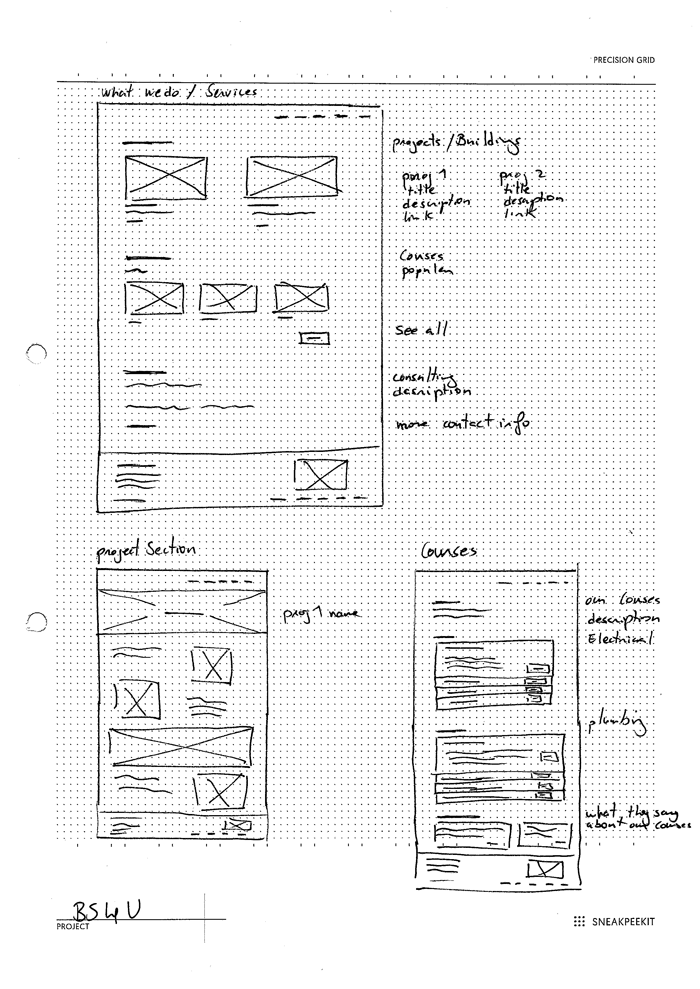 PRECISION GRID
what we do / Services
projects / Building
proj 1
title
description
link
proj 2
title
description
link
Courses
popular
see all
consulting
description
more contact info
project Section
proj 1 name
Courses
our Courses
description
Electrical
plumbing
what they say
about our courses
BS4U
PROJECT
SNEAKPEEKIT